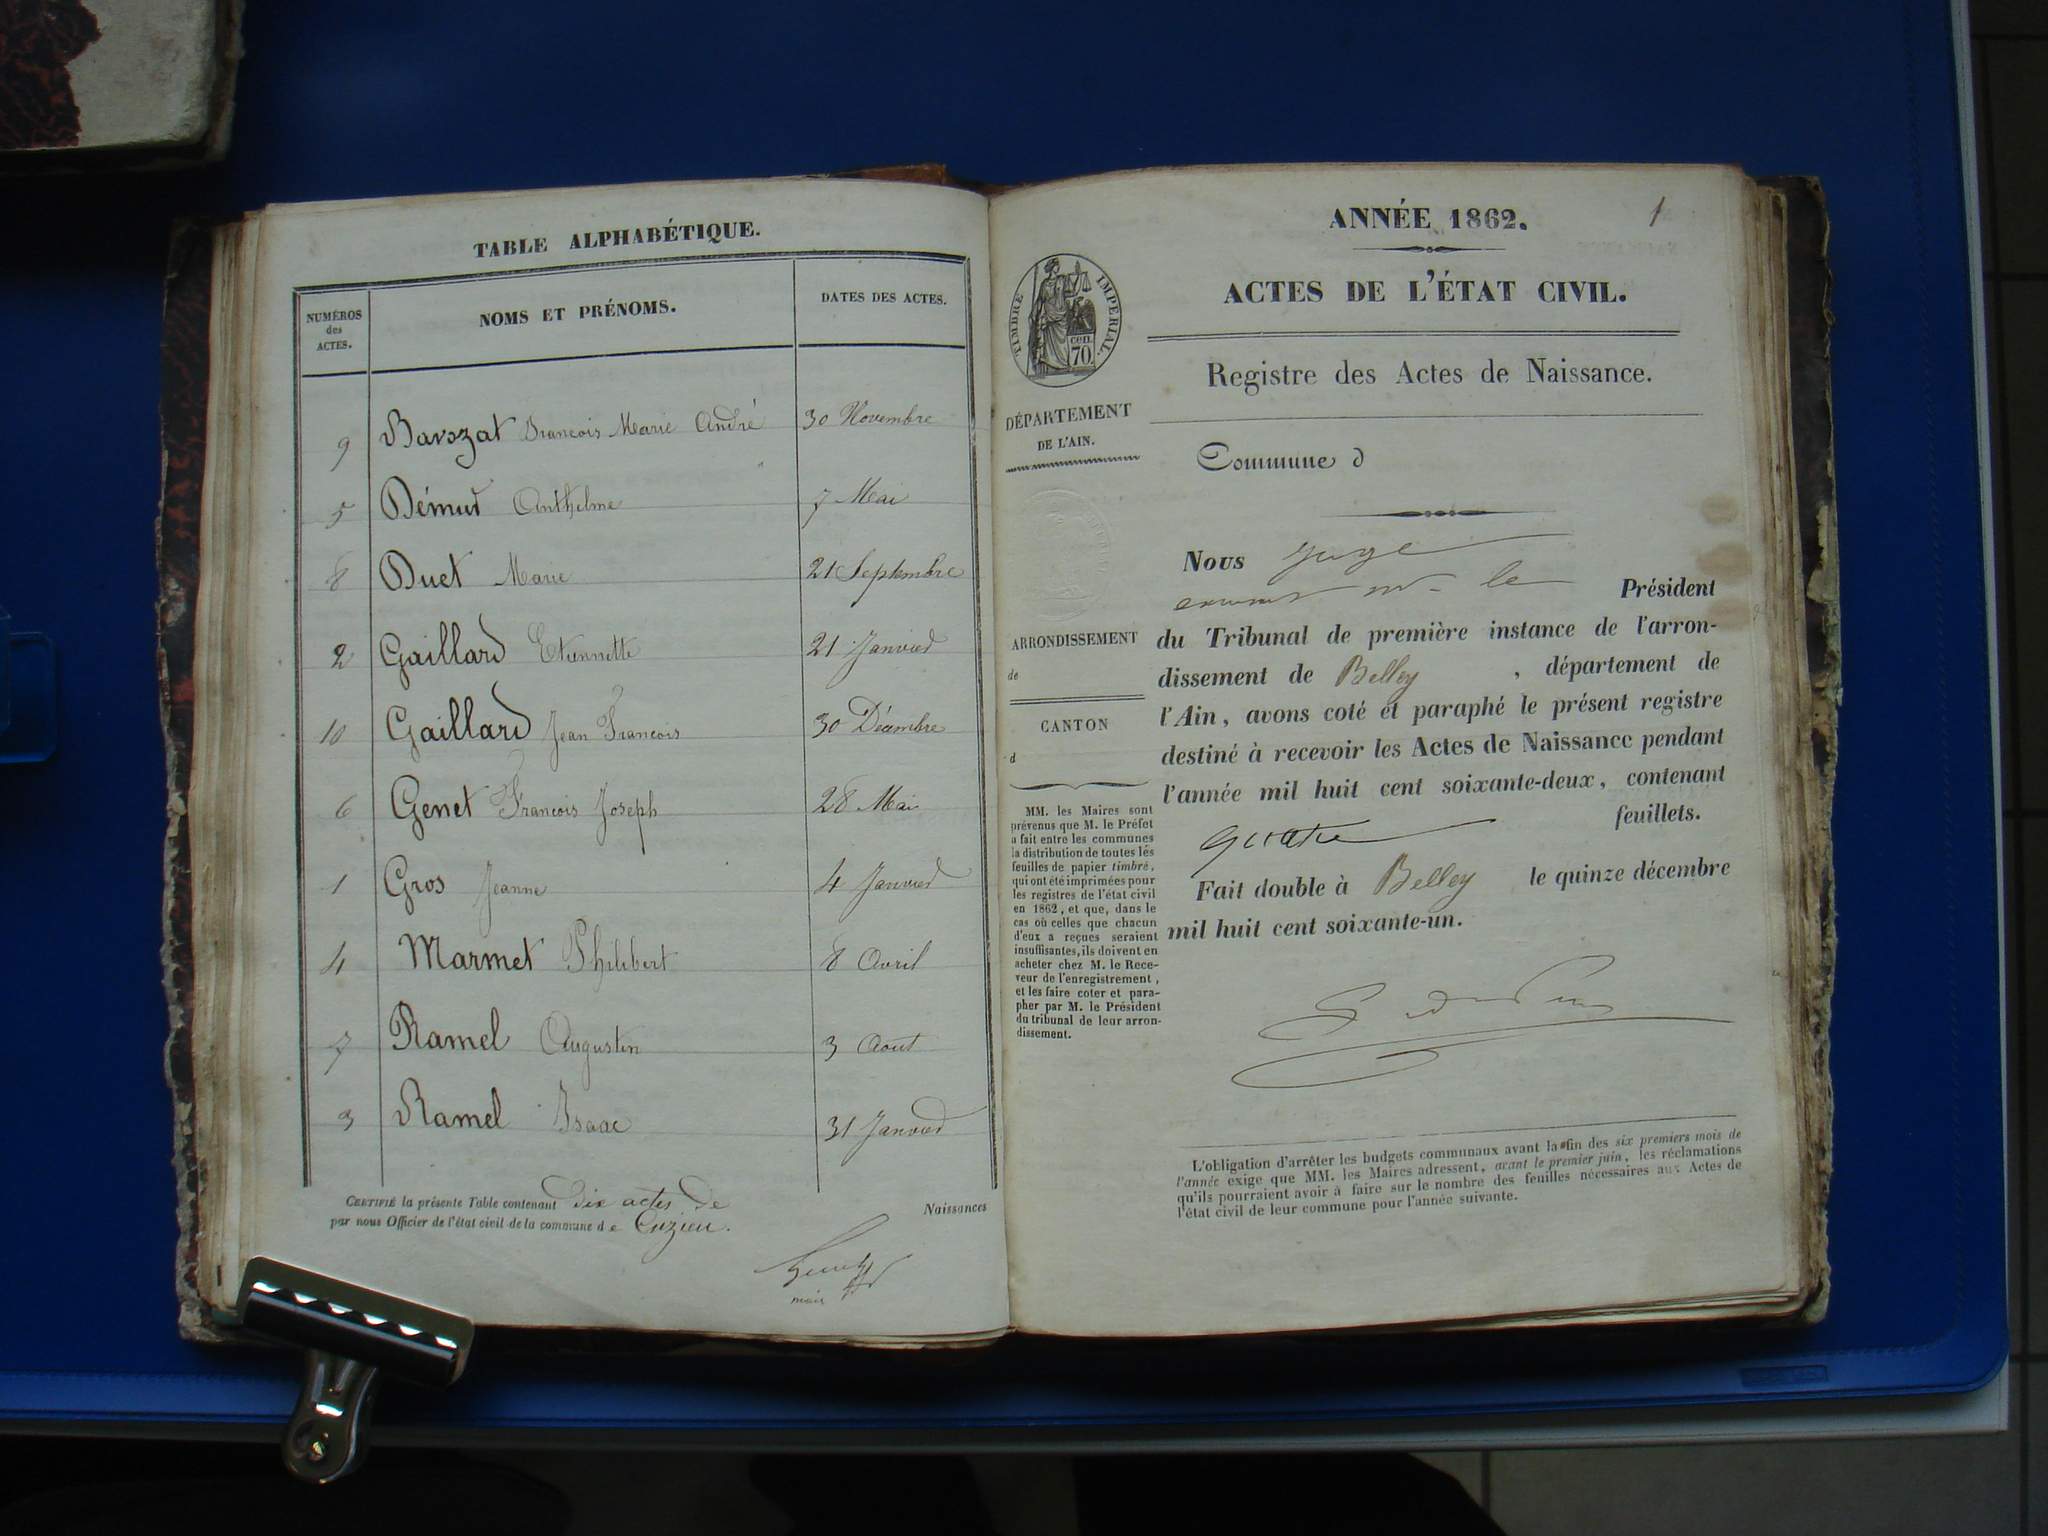 TABLE ALPHABÉTIQUE.
NUMÉROS
des
ACTES.
NOMS ET PRÉNOMS.
DATES DES ACTES.
9 Barozat Francois Marie André 30 Novembre
5 Démur Anthelme 7 Mai
8 Duet Marie 21 Septembre
2 Gaillard Etiennette 21 Janvier
10 Gaillard Jean Francois 30 Décembre
6 Genet Francois Joseph 28 Mai
1 Gros Jeanne 4 Janvier
4 Marmet Philibert 8 Avril
7 Ramel Augustin 3 Aout
3 Ramel Isaac 31 Janvier
CERTIFIÉ la présente Table contenant Dix actes de Naissances
par nous Officier de l'état civil de la commune de Cuzieu.
maire
1
ANNÉE 1862.
ACTES DE L'ÉTAT CIVIL.
Registre des Actes de Naissance.
TIMBRE IMPÉRIAL.
cen.
70
DÉPARTEMENT
DE L'AIN.
ARRONDISSEMENT
de
CANTON
d
MM. les Maires sont
prévenus que M. le Préfet
a fait entre les communes
la distribution de toutes les
feuilles de papier timbré,
qui ont été imprimées pour
les registres de l'état civil
en 1862, et que, dans le
cas où celles que chacun
d'eux a reçues seraient
insuffisantes, ils doivent en
acheter chez M. le Rece-
veur de l'enregistrement,
et les faire coter et para-
pher par M. le Président
du tribunal de leur arron-
dissement.
Commune d
Nous juge
le Président
du Tribunal de première instance de l'arron-
dissement de Belley, département de
l'Ain, avons coté et paraphé le présent registre
destiné à recevoir les Actes de Naissance pendant
l'année mil huit cent soixante-deux, contenant
quatre feuillets.
Fait double à Belley le quinze décembre
mil huit cent soixante-un.
L'obligation d'arrêter les budgets communaux avant la fin des six premiers mois de
l'année exige que MM. les Maires adressent, avant le premier juin, les réclamations
qu'ils pourraient avoir à faire sur le nombre des feuilles nécessaires aux Actes de
l'état civil de leur commune pour l'année suivante.